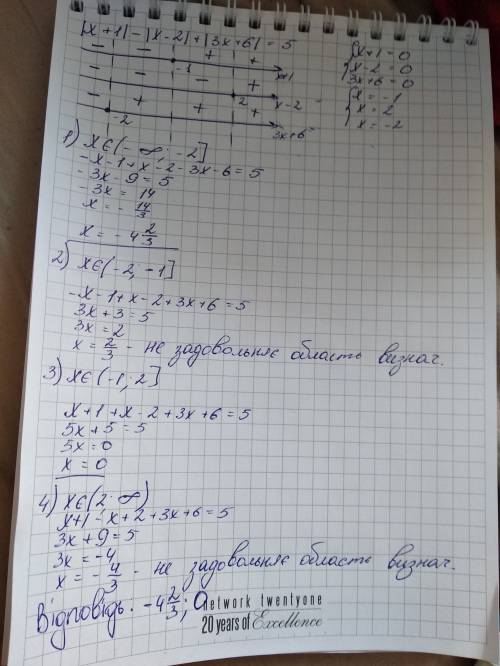 |x+1|-|x-2|+|3x+6|=5
x+1=0
x-2=0
3x+6=0
x=-1
x=2
x=-2
- - + +
-1 x+1
- - - +
2 x-2
- + + +
-2 3x+6
1) x∈(-∞; -2]
-x-1+x-2-3x-6=5
-3x-9=5
-3x=14
x=-14/3
x=-4 2/3
2) x∈(-2, -1]
-x-1+x-2+3x+6=5
3x+3=5
3x=2
x=2/3 - не задовольняє область визнач.
3) x∈(-1; 2]
x+1+x-2+3x+6=5
5x+5=5
5x=0
x=0
4) x∈(2; ∞)
x+1-x+2+3x+6=5
3x+9=5
3x=-4
x=-4/3 - не задовольняє область визнач.
Відповідь: -4 2/3; 0
network twentyone
20 years of Excellence